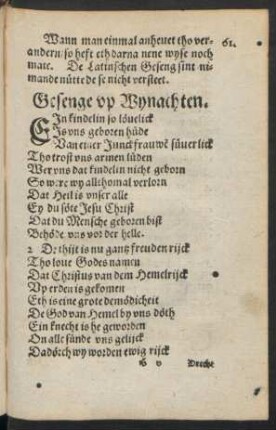 Wann man einmal anheuet tho ver- 61.
andern/ so heft eth darna nene wyse noch
mate. De Latinschen Geseng sint ni-
mande nütte de se nicht versteet.
Gesenge vp Wynachten.
EJn kindelin so löuelick
Js vns geboren hüde
Van einer Junckfrauwē süuerlick
Tho trost vns armen lüden
Wer vns dat kindelin nicht geborn
So were wy allthomal verlorn
Dat Heil is vnser alle
Ey du söte Jesu Christ
Dat du Mensche geboren bist
Behöde vns vor der helle.
2 De thijt is nu gantz freuden rijck
Tho loue Godes namen
Dat Christus van dem Hemelrijck
Vp erden is gekomen
Eth is eine grote demödicheit
De God van Hemel by vns döth
Ein knecht is he geworden
On alle sünde vns gelijck
Dadörch wy worden ewig rijck
G v Drecht